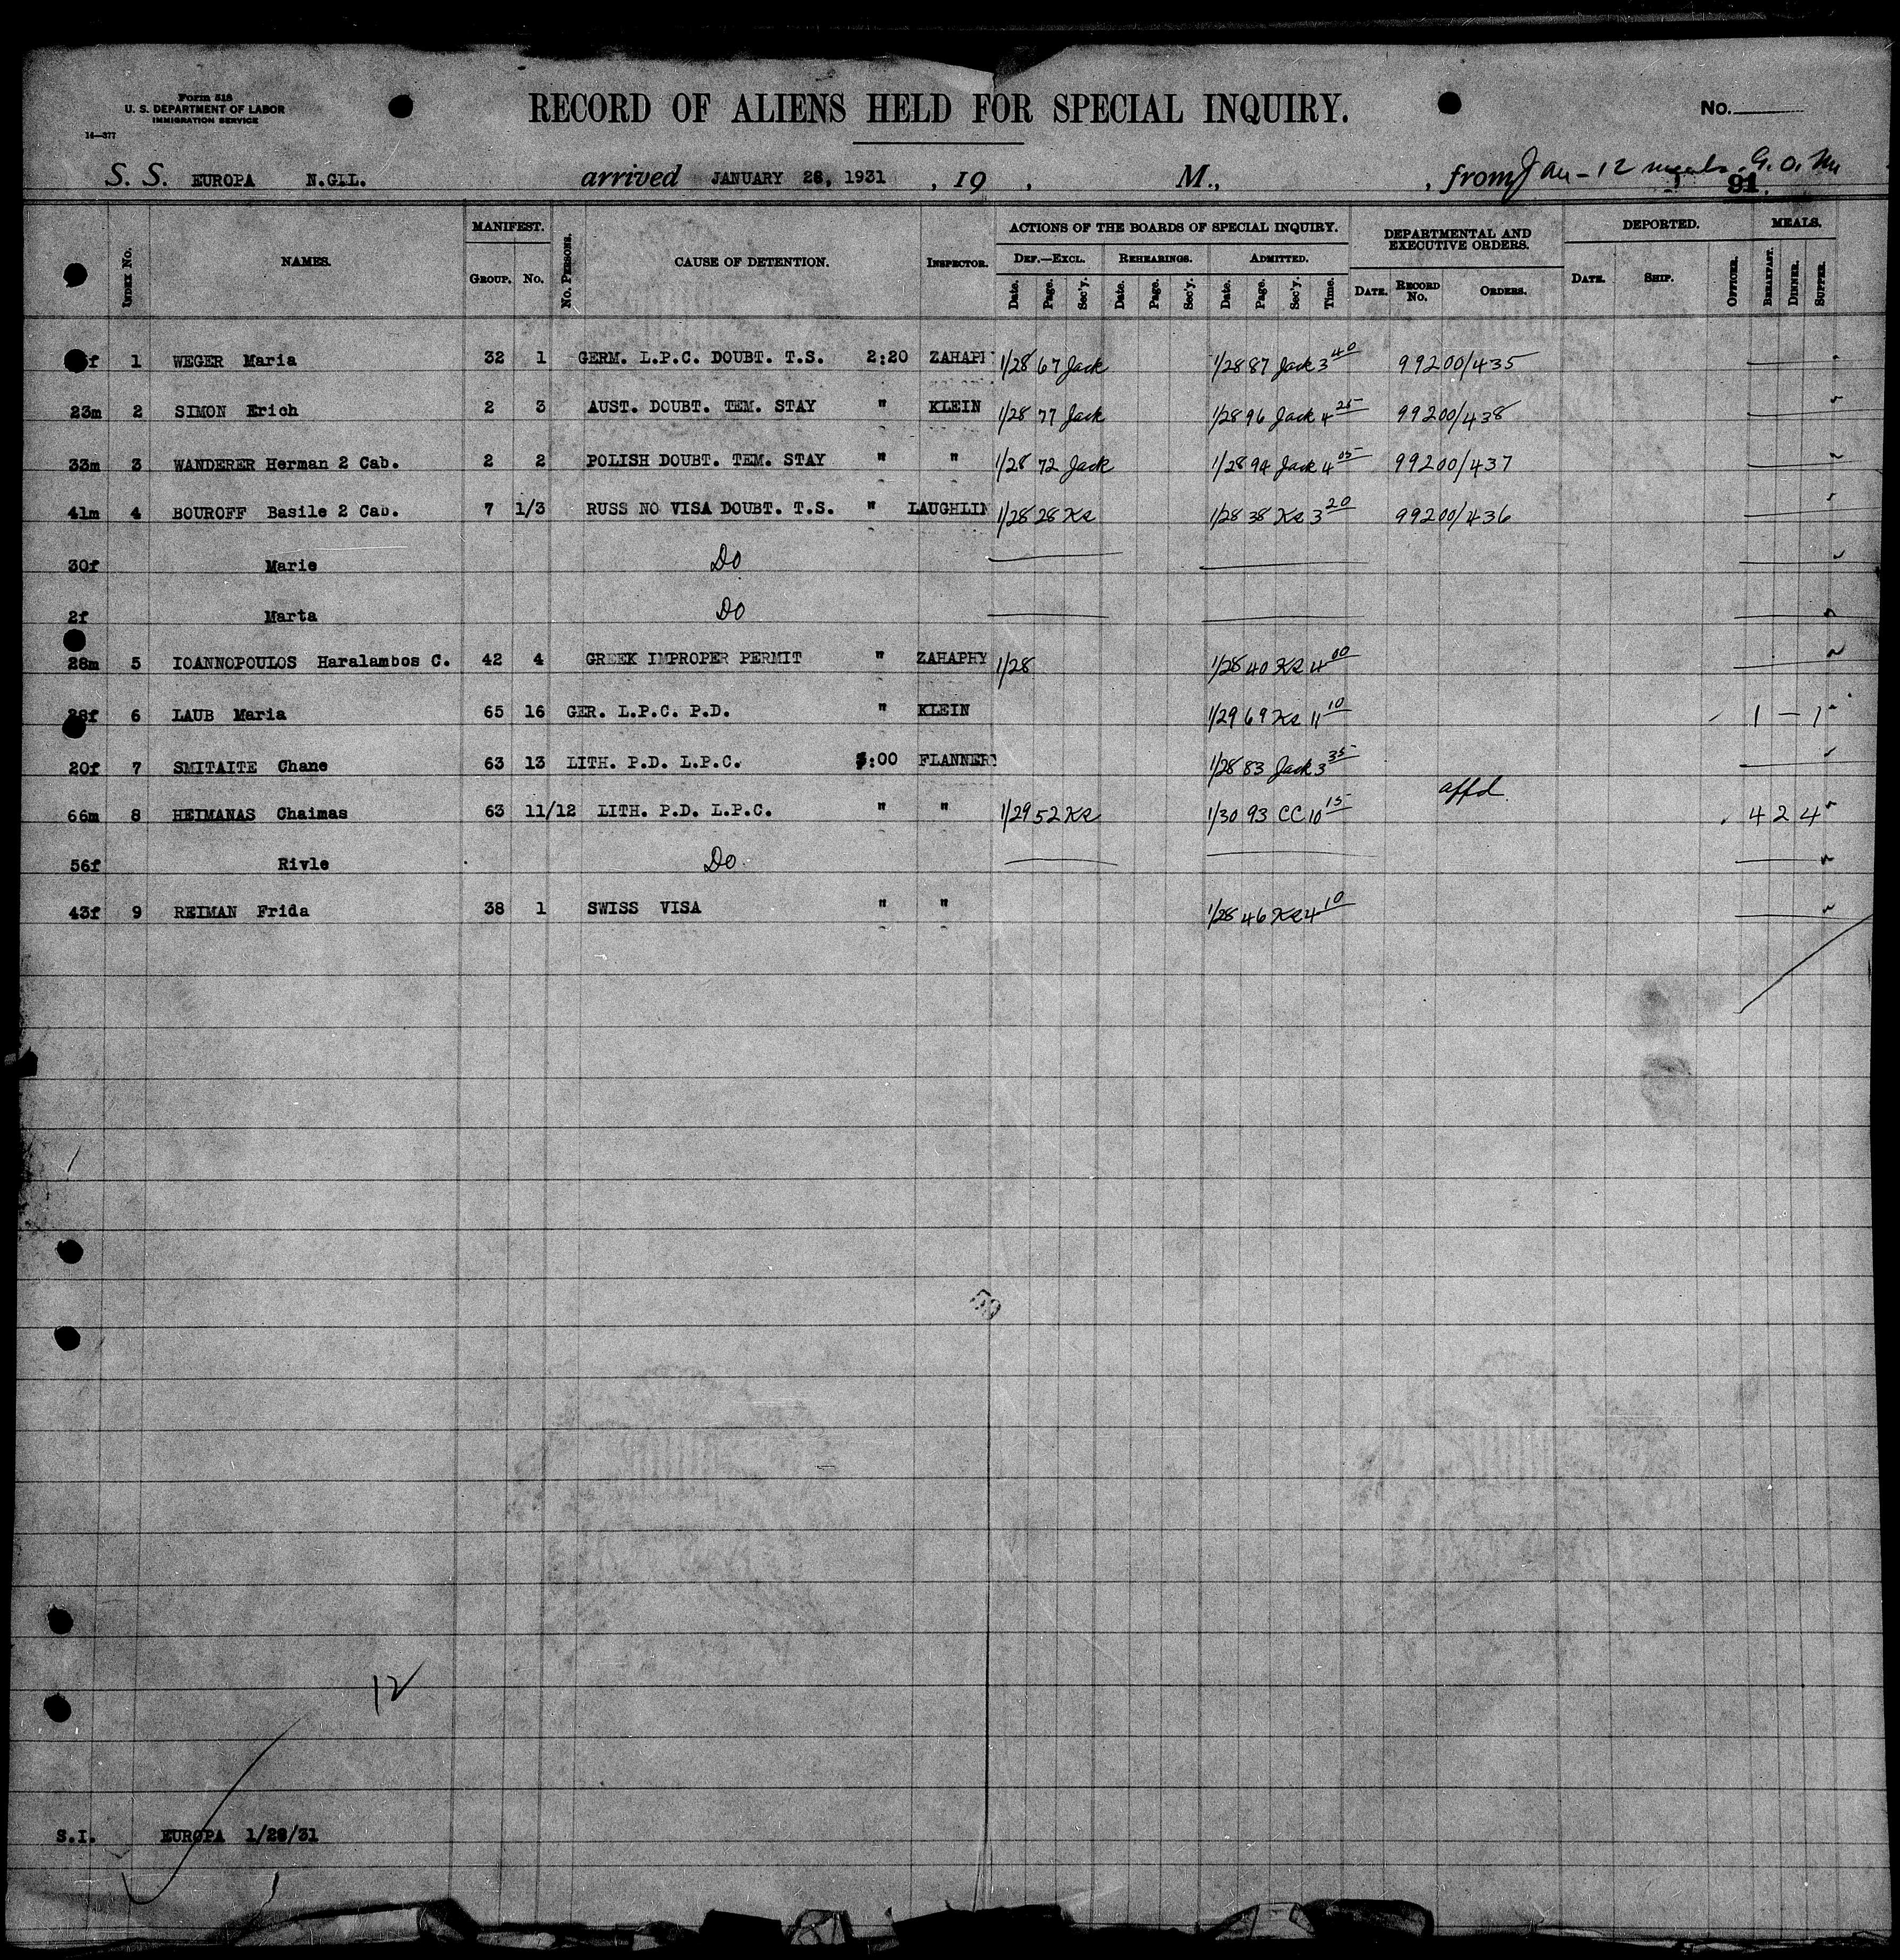 Form 518
U. S. DEPARTMENT OF LABOR
IMMIGRATION SERVICE
14—377
RECORD OF ALIENS HELD FOR SPECIAL INQUIRY.
No.
S. S. EUROPA N.G.L. arrived JANUARY 28, 1931 , 19 , M., , from Jan - 12 meals G.O.M.
91
INDEX No. NAMES. MANIFEST. GROUP. No. No. PERSONS. CAUSE OF DETENTION. INSPECTOR. ACTIONS OF THE BOARDS OF SPECIAL INQUIRY. DEF.—EXCL. Date. Page. Sec'y. REHEARINGS. Date. Page. Sec'y. ADMITTED. Date. Page. Sec'y. Time. DEPARTMENTAL AND EXECUTIVE ORDERS. DATE. RECORD No. ORDERS. DEPORTED. DATE. SHIP. OFFICER. MEALS. BREAKFAST. DINNER. SUPPER.
f 1 WEGER Maria 32 1 GERM. L.P.C. DOUBT. T.S. 2:20 ZAHAPH 1/28 67 Jack 1/28 87 Jack 3 40 99200/435
23m 2 SIMON Erich 2 3 AUST. DOUBT. TEM. STAY " KLEIN 1/28 77 Jack 1/28 96 Jack 4 25 99200/438
33m 3 WANDERER Herman 2 Cab. 2 2 POLISH DOUBT. TEM. STAY " " 1/28 72 Jack 1/28 94 Jack 4 05 99200/437
41m 4 BOUROFF Basile 2 Cab. 7 1/3 RUSS NO VISA DOUBT. T.S. " LAUGHLIN 1/28 28 KR 1/28 38 KR 3 20 99200/436
30f Marie Do
2f Marta Do
28m 5 IOANNOPOULOS Haralambos C. 42 4 GREEK IMPROPER PERMIT " ZAHAPHY 1/28 1/28 40 KR 4 00
f 6 LAUB Maria 65 16 GER. L.P.C. P.D. " KLEIN 1/29 69 KR 11 10 1 – 1
20f 7 SMITAITE Chane 63 13 LITH. P.D. L.P.C. :00 FLANNERY 1/28 83 Jack 3 35
66m 8 HEIMANAS Chaimas 63 11/12 LITH. P.D. L.P.C. " " 1/29 52 KR 1/30 93 CC 10 15 affd. 4 2 4
56f Rivle Do
43f 9 REIMAN Frida 38 1 SWISS VISA " " 1/28 46 KR 4 10
12
S.I. EUROPA 1/28/31